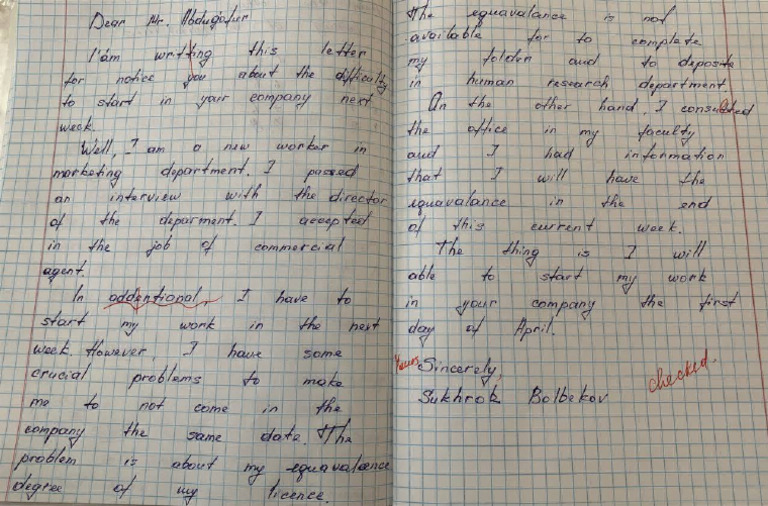 Dear Mr. Abdugafur
I'am writting this letter
for notice you about the difficulty
to start in your company next
week.
Well, I am a new worker in
marketing department. I passed
an interview with the director
of the deparment. I accepted
in the job of commercial
agent.
In addentional, I have to
start my work in the next
week. However, I have some
crucial problems to make
me to not come in the
company the same date. The
problem is about my equavalence
degree of my licence.
The equavalance is not
available for to complete
my folder and to deposite
in human research department
On the other hand I consulted
the office in my faculty
and I had information
that I will have the
equavalance in the end
of this current week.
The thing is I will
able to start my work
in your company the first
day of April.
Yours Sincerely,
Sukhrob Bolbekov
checked.